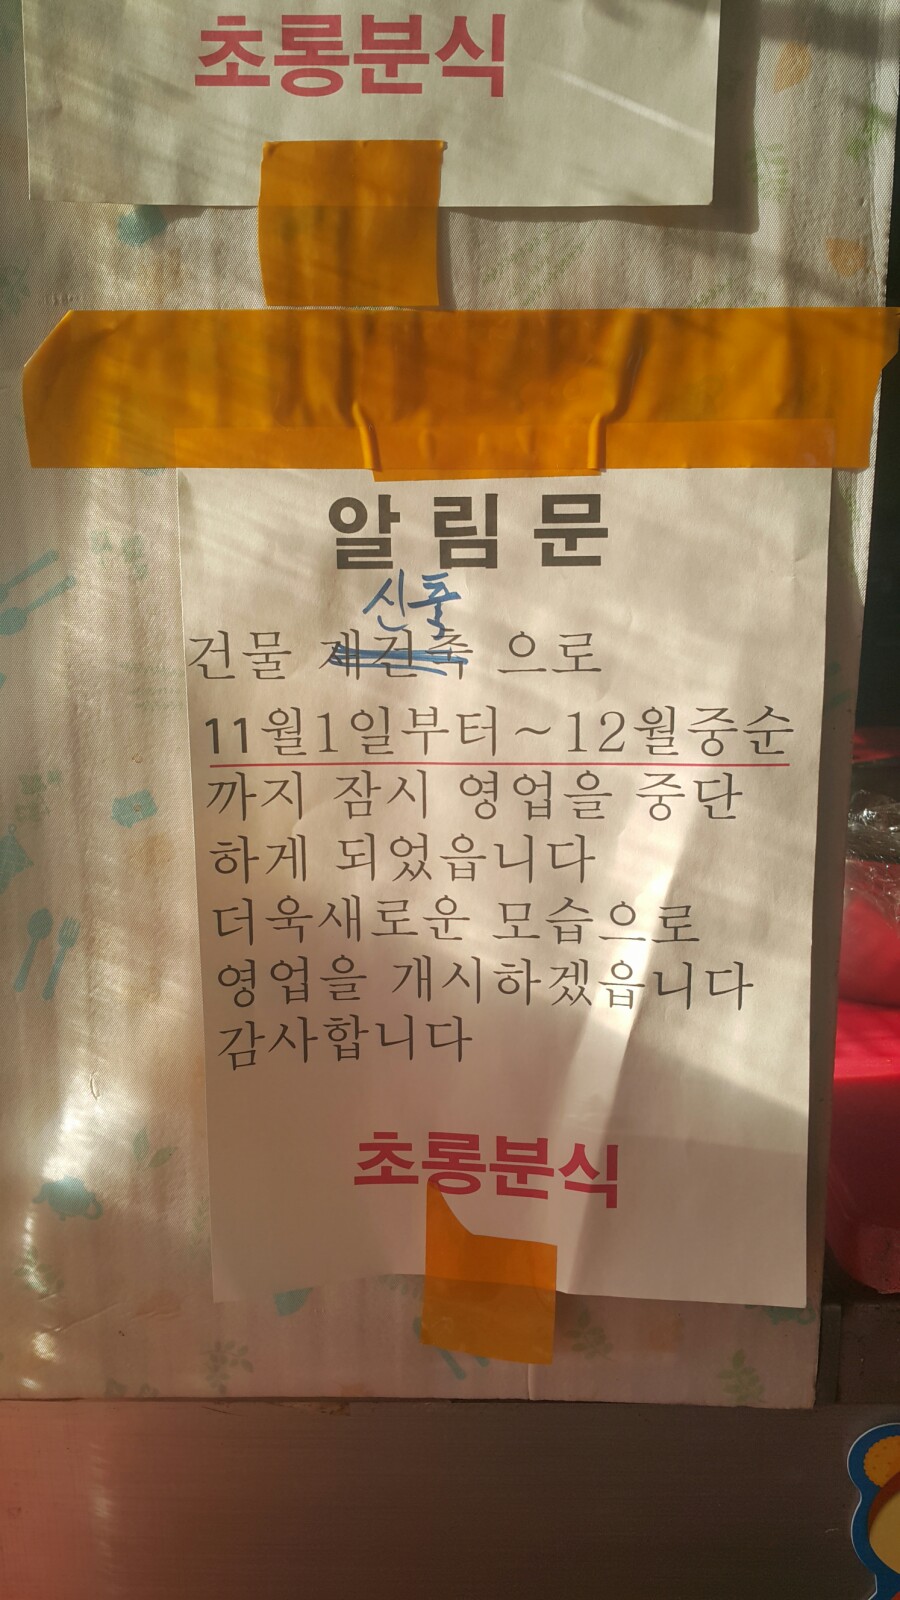 초롱분식
알림문
신축
건물 재건축 으로
11월1일부터~12월중순
까지 잠시 영업을 중단
하게 되었읍니다
더욱새로운 모습으로
영업을 개시하겠읍니다
감사합니다
초롱분식